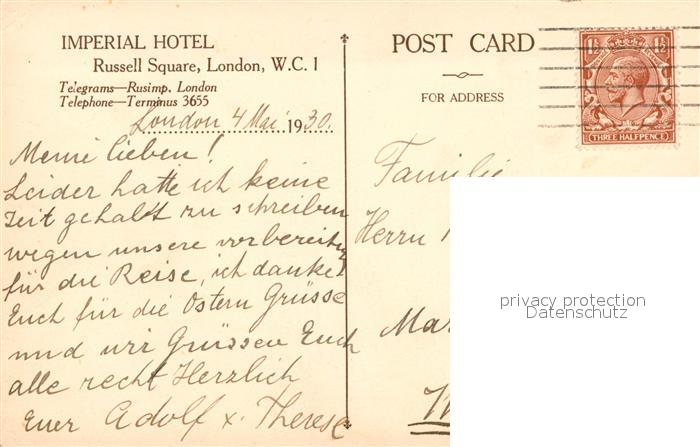 IMPERIAL HOTEL
Russell Square, London, W.C. 1
Telegrams—Rusimp, London
Telephone—Terminus 3655
London 4 Mai 1930.
Meine lieben!
Leider hatte ich keine
Zeit gehabt zu schreiben
wegen unsere vorbereitung
für die Reise, ich danke
Euch für die Ostern Grüsse
und wir Grüssen Euch
alle recht Herzlich
Euer Adolf x. Therese
POST CARD
FOR ADDRESS
1½ 1½
THREE HALFPENCE
Familie
Herrn
Mar
privacy protection
Datenschutz